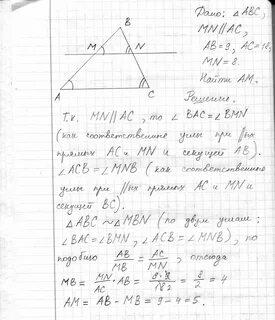 Дано: △ABC,
MN//AC,
AB=9, AC=18,
MN=8.
Найти AM.
B
M
N
A
C
Решение.
Т.к. MN//AC, то ∠BAC=∠BMN
(как соответственные углы при //ых
прямых AC и MN и секущей AB).
∠ACB=∠MNB (как соответственные
углы при //ых прямых AC и MN и
секущей BC).
△ABC∼△MBN (по двум углам:
∠BAC=∠BMN, ∠ACB=∠MNB), по
подобию AB/MB = AC/MN, отсюда
MB = MN/AC · AB = 8·9/18 2 = 8/2 = 4
AM = AB - MB = 9 - 4 = 5.